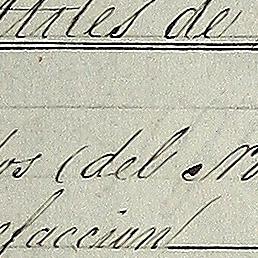 ttoles de
os (del N
faccion